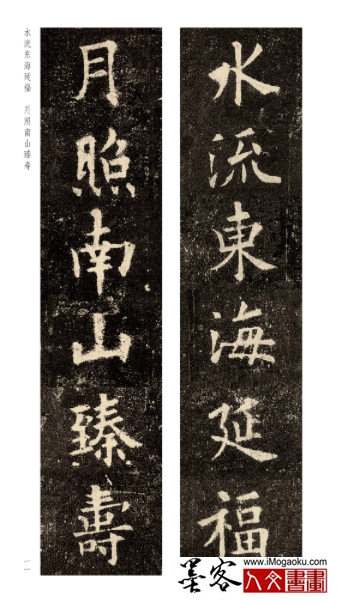 水流東海延福
月照南山臻壽
水流东海延福 月照南山臻寿
一一
墨客
www.iMogaoku.com
人文书画